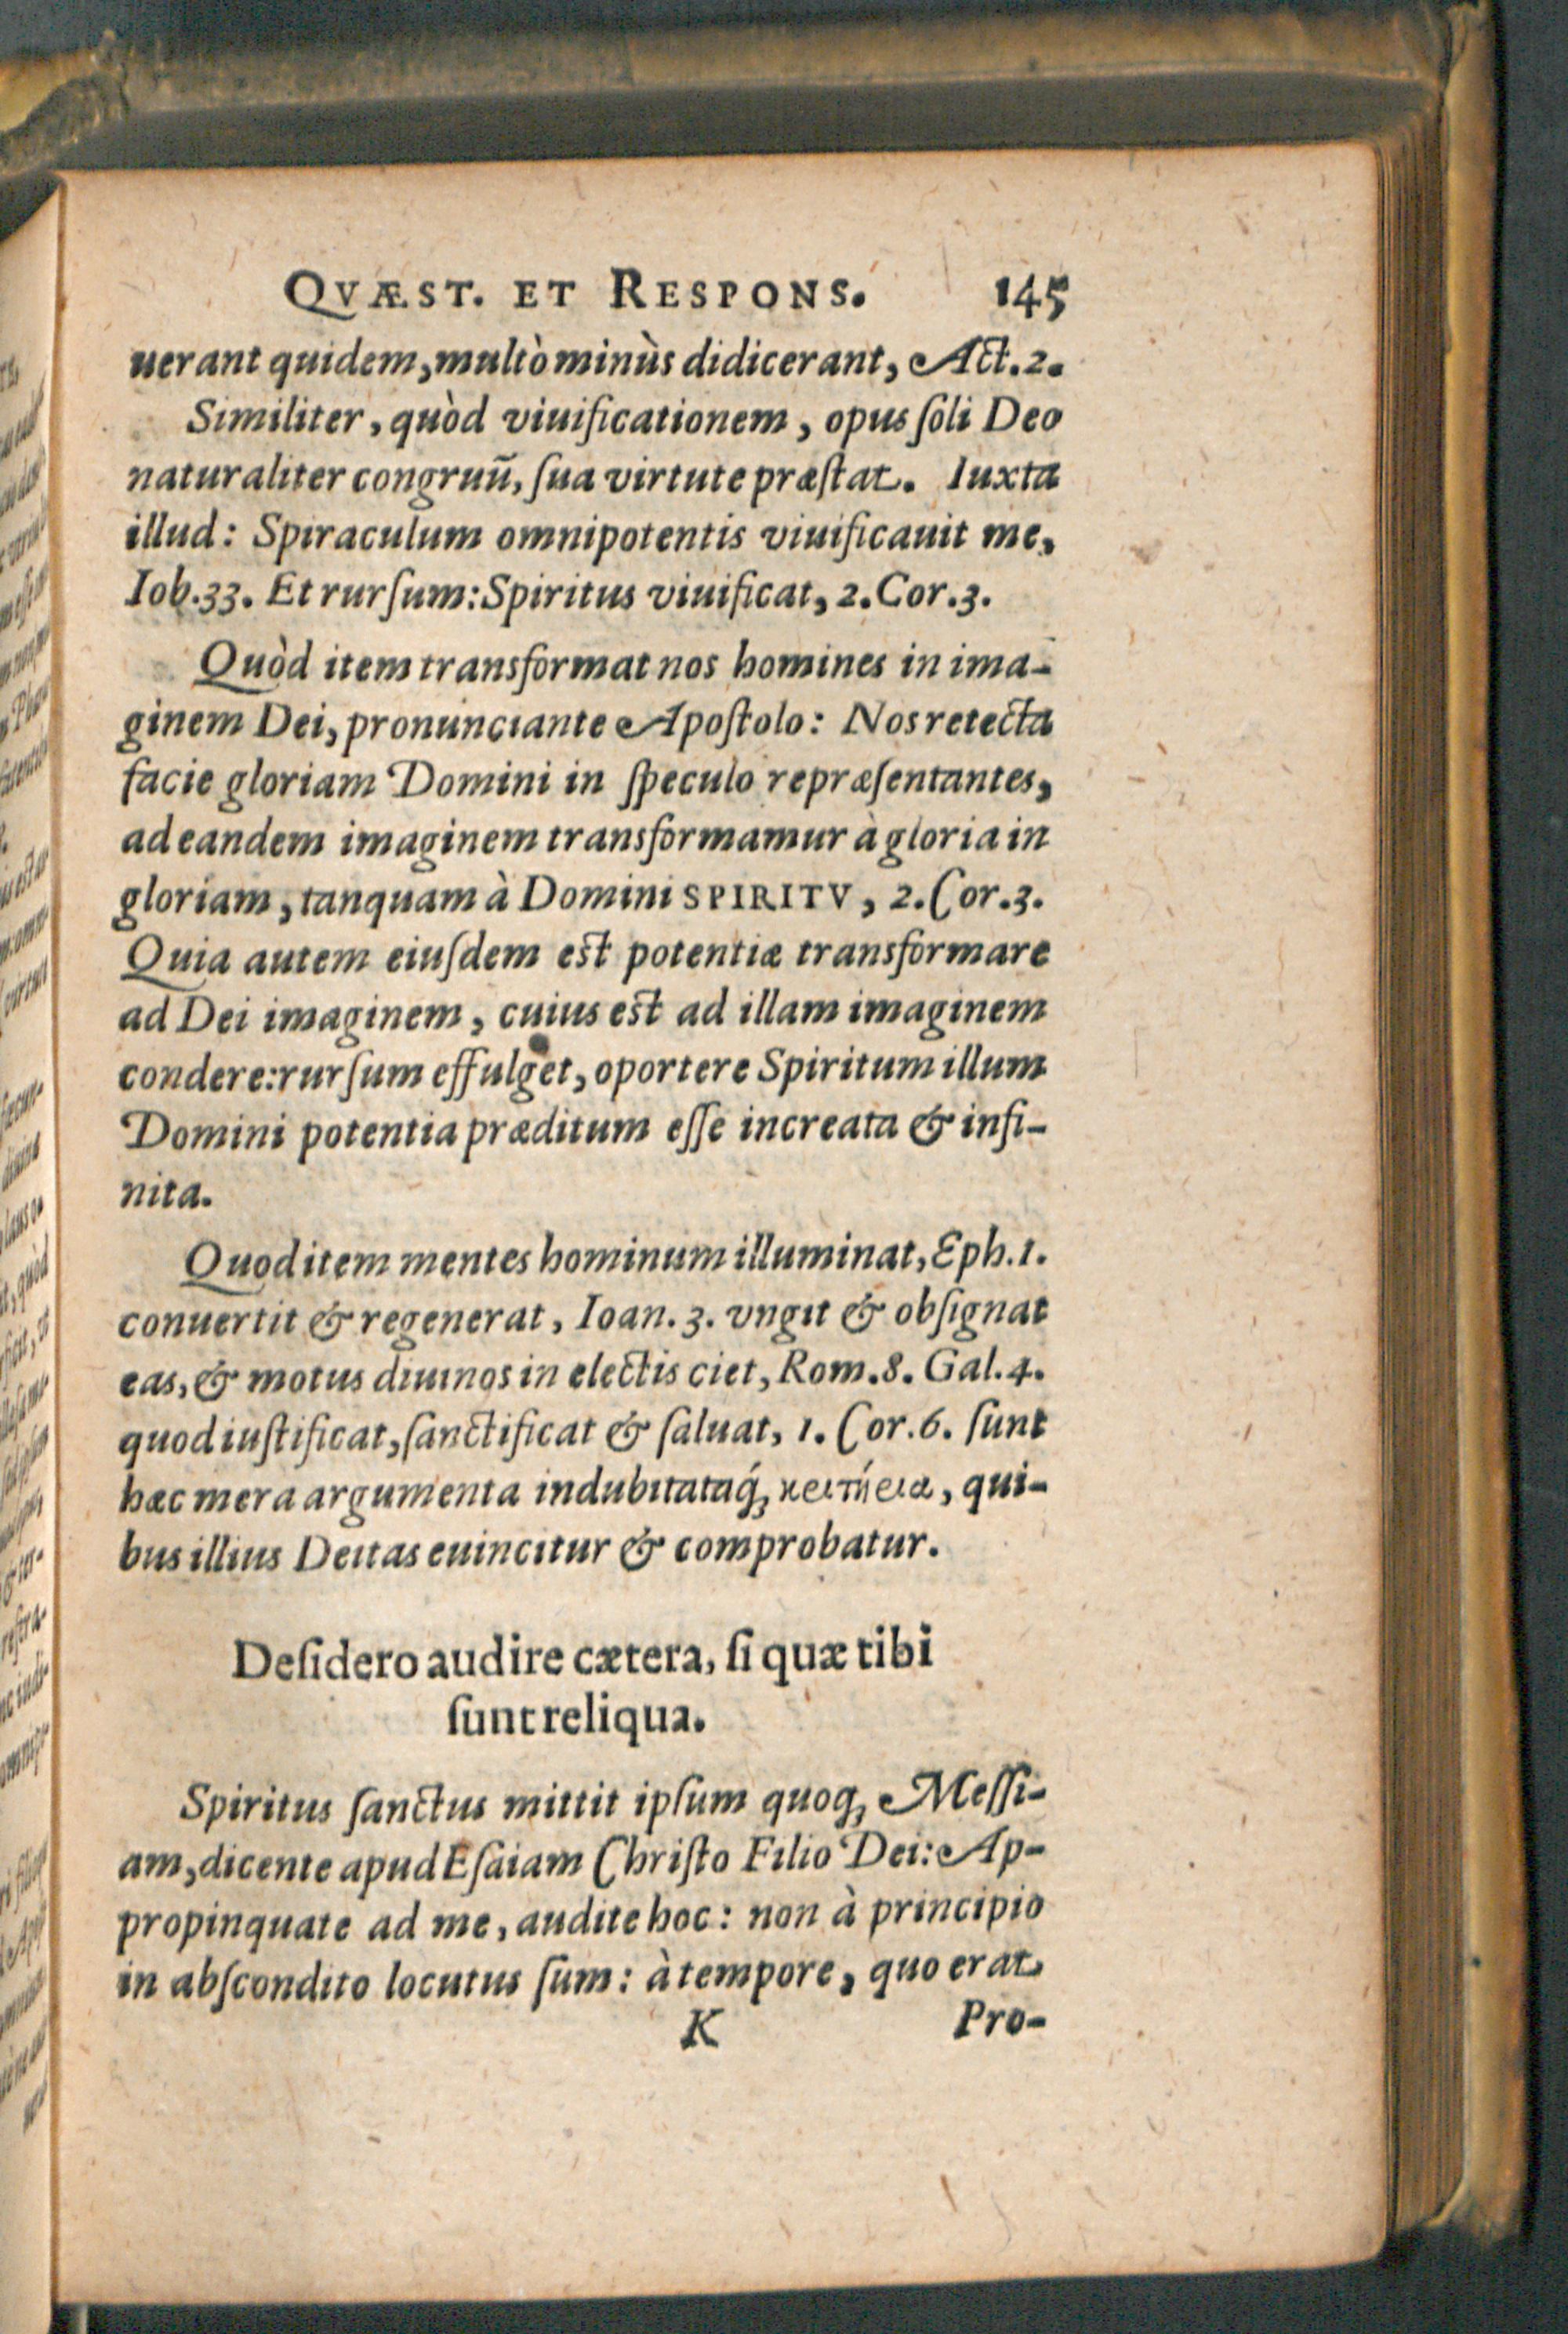 QVÆST. ET RESPONS. 145
uerant quidem, multò minùs didicerant, Act.2.
Similiter, quòd viuificationem, opus ſoli Deo
naturaliter congruũ, ſua virtute præſtat. Iuxta
illud: Spiraculum omnipotentis viuificauit me,
Iob.33. Et rurſum: Spiritus viuificat, 2.Cor.3.
Quòd item transformat nos homines in ima-
ginem Dei, pronunciante Apoſtolo: Nos retecta
facie gloriam Domini in ſpeculo repræſentantes,
ad eandem imaginem transformamur à gloria in
gloriam, tanquam à Domini SPIRITV, 2.Cor.3.
Quia autem eiuſdem eſt potentiæ transformare
ad Dei imaginem, cuius eſt ad illam imaginem
condere: rurſum effulget, oportere Spiritum illum
Domini potentia præditum eſſe increata & infi-
nita.
Quod item mentes hominum illuminat, Eph.1.
conuertit & regenerat, Ioan. 3. vngit & obſignat
eas, & motus diuinos in electis ciet, Rom.8. Gal.4.
quod iuſtificat, ſanctificat & ſaluat, 1. Cor.6. ſunt
hæc mera argumenta indubitataq́;, κειτήεια, qui-
bus illius Deitas euincitur & comprobatur.
Deſidero audire cætera, ſi quæ tibi
ſunt reliqua.
Spiritus ſanctus mittit ipſum quoq; Meſſi-
am, dicente apud Eſaiam Chriſto Filio Dei: Ap-
propinquate ad me, audite hoc: non à principio
in abſcondito locutus ſum: à tempore, quo erat
K Pro-